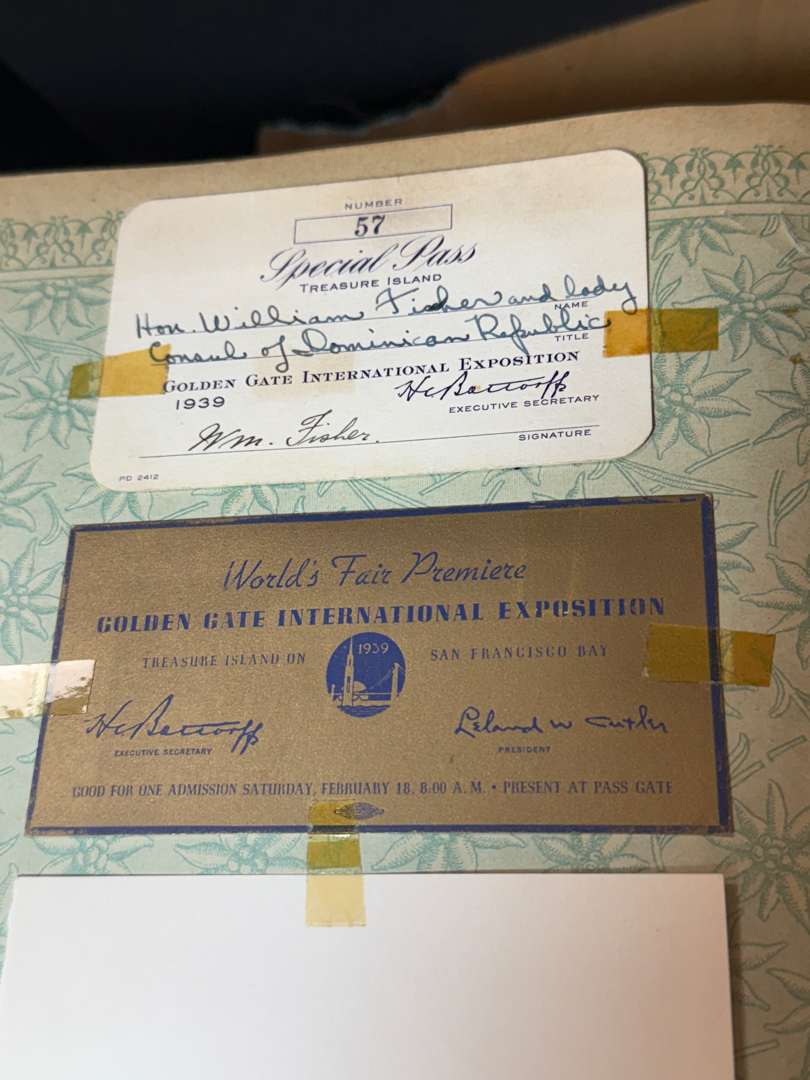 NUMBER
57
Special Pass
TREASURE ISLAND
Hon. William Fisher and lady
NAME
Consul of Dominican Republic
TITLE
GOLDEN GATE INTERNATIONAL EXPOSITION
1939
HC Bottorff
EXECUTIVE SECRETARY
Wm. Fisher.
SIGNATURE
PD 2412
World's Fair Premiere
GOLDEN GATE INTERNATIONAL EXPOSITION
TREASURE ISLAND ON
1939
SAN FRANCISCO BAY
HC Bottorff
Leland W Cutler
EXECUTIVE SECRETARY
PRESIDENT
GOOD FOR ONE ADMISSION SATURDAY, FEBRUARY 18, 8:00 A.M. • PRESENT AT PASS GATE